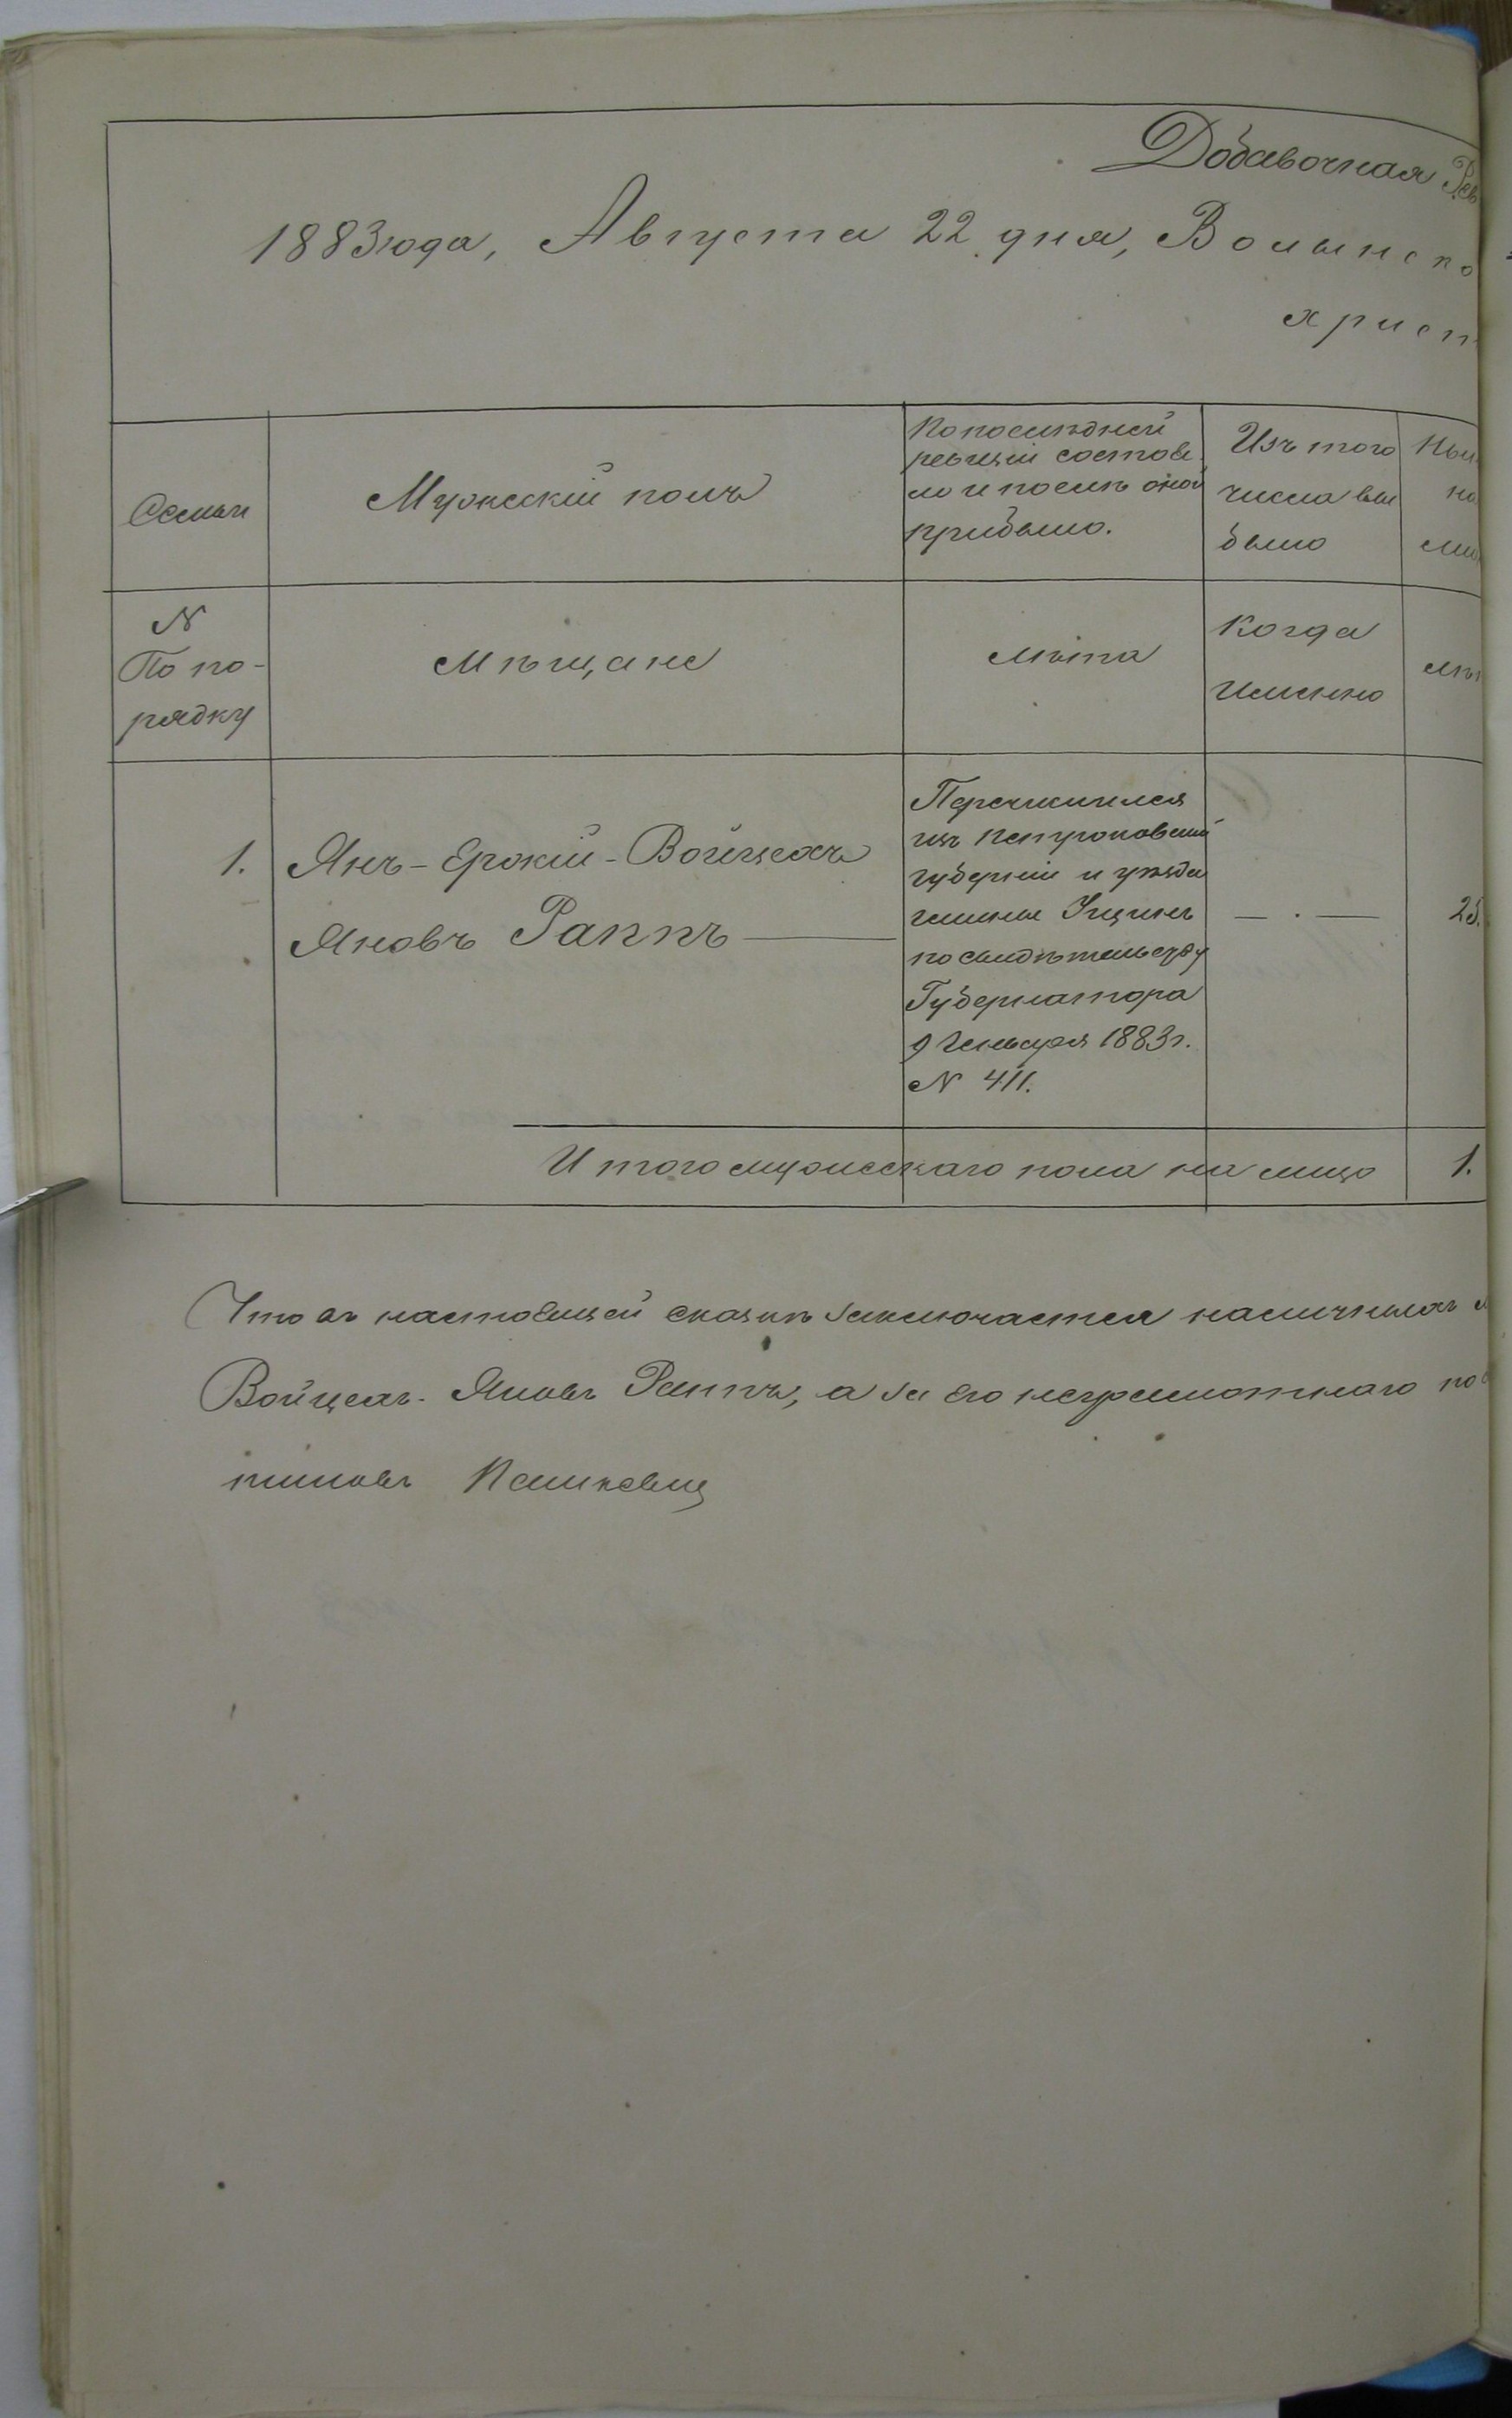 Добавочная Рев
1883 года, Августа 22 дня, Волынско
христ
Семьи
Мужескій полъ
По послѣдней
ревизіи состоя
ло и послѣ оной
прибыло.
Изъ того
числа вы
было
Нын
на
лиц
N
По по-
рядку
Мѣщане
лѣта
Когда
Именно
лѣт
1.
Янъ-Ержій-Войцехъ
Яновъ Раппъ
Перечислился
изъ Петроковской
губерніи и уѣзда
гмины
по свидѣтельству
Губернатора
9 Января 1883 г.
N 411.
— . —
25.
Итого мужескаго пола на лицо
1.
Что въ настоящей сказкѣ заключается наличныхъ
Войцехъ Яновъ Раппъ, а за его неграмотнаго по